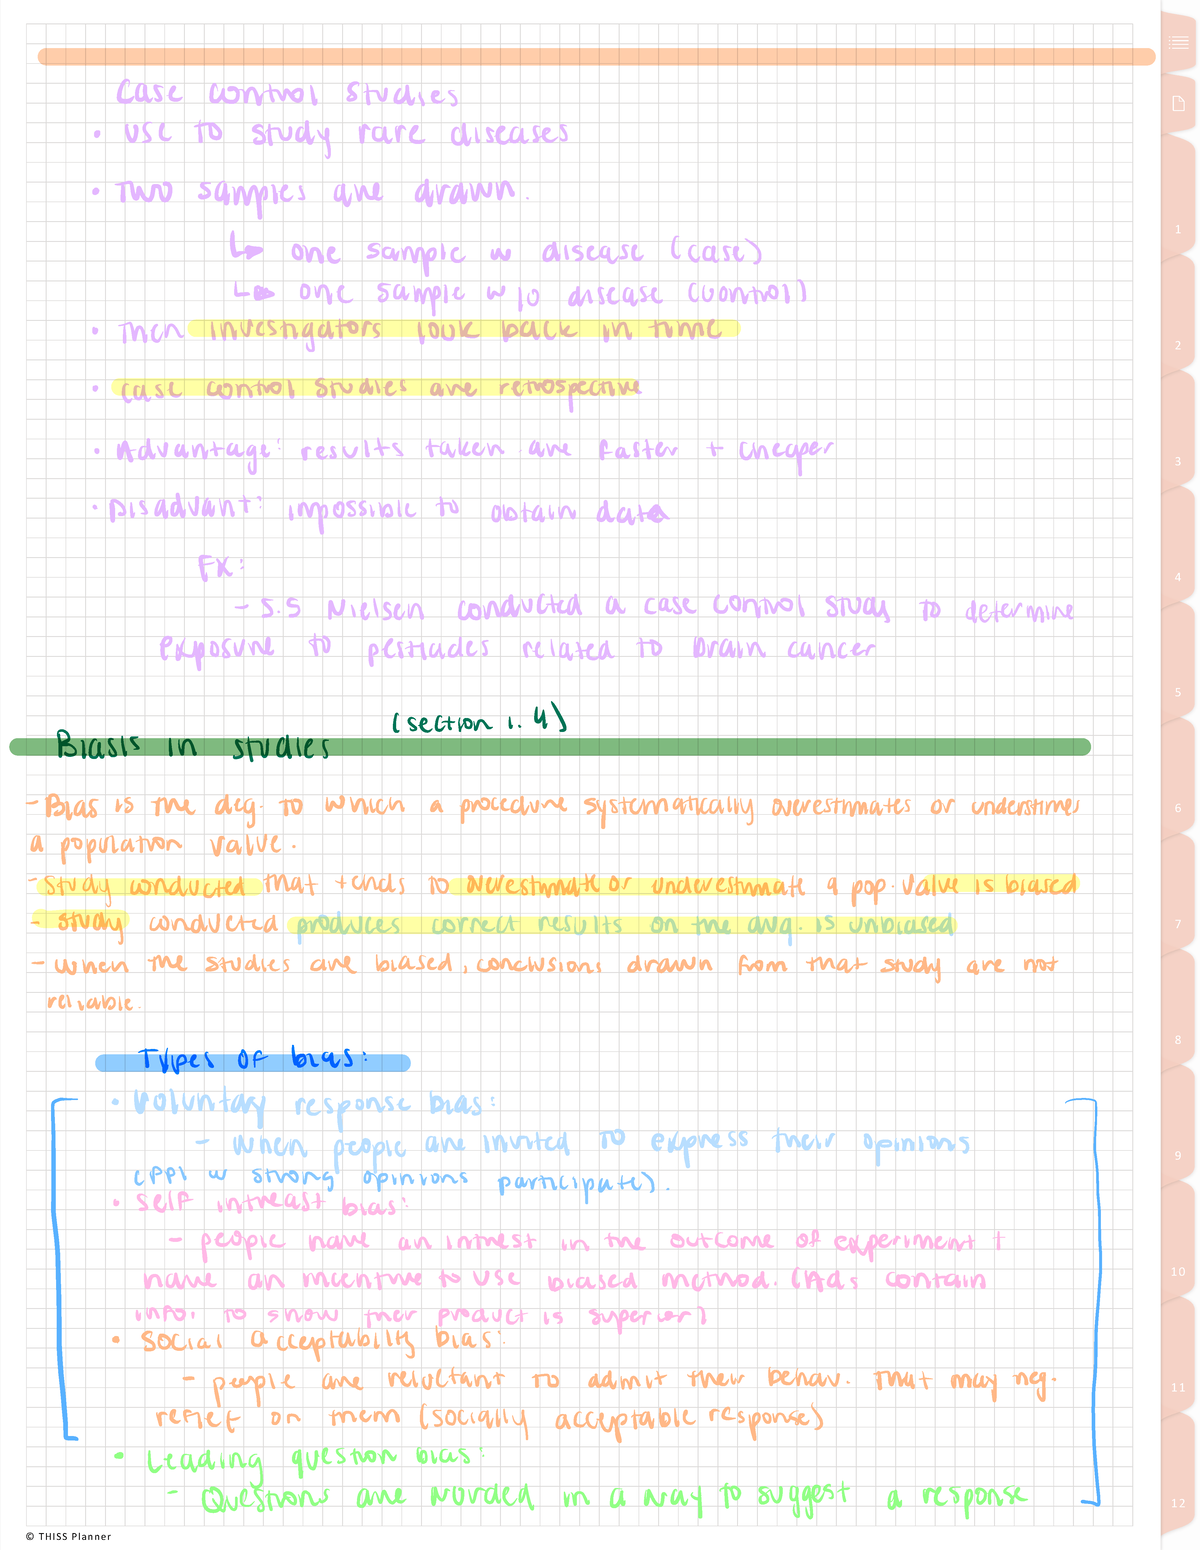 Case control studies
• use to study rare diseases
• Two samples are drawn.
↳ one sample w disease (case)
↳ one sample w/o disease (control)
• Then investigators look back in time
• case control studies are retrospective
• Advantage: results taken are faster + cheaper
• Disadvant: impossible to obtain data
EX:
- S.S Nielsen conducted a case control study to determine
exposure to pesticides related to brain cancer
(section 1.4)
Biasis in studies
- Bias is the deg. to which a procedure systematically overestimates or understimes
a population value.
- Study conducted that tends to overestimate or underestimate a pop. value is biased
- study conducted produces correct results on the avg. is unbiased
- when the studies are biased, conclusions drawn from that study are not
reliable.
Types of bias:
• Voluntary response bias:
- when people are invited to express their opinions
(ppl w strong opinions participate).
• self intreast bias:
- people have an intrest in the outcome of experiment +
have an incentive to use biased method. (Ads contain
info. to show their product is superior)
• social acceptability bias:
- people are reluctant to admit their behav. that may neg.
reflet on them (socially acceptable response)
• Leading question bias:
- Questions are worded in a way to suggest a response
1
2
3
4
5
6
7
8
9
10
11
12
© THISS Planner